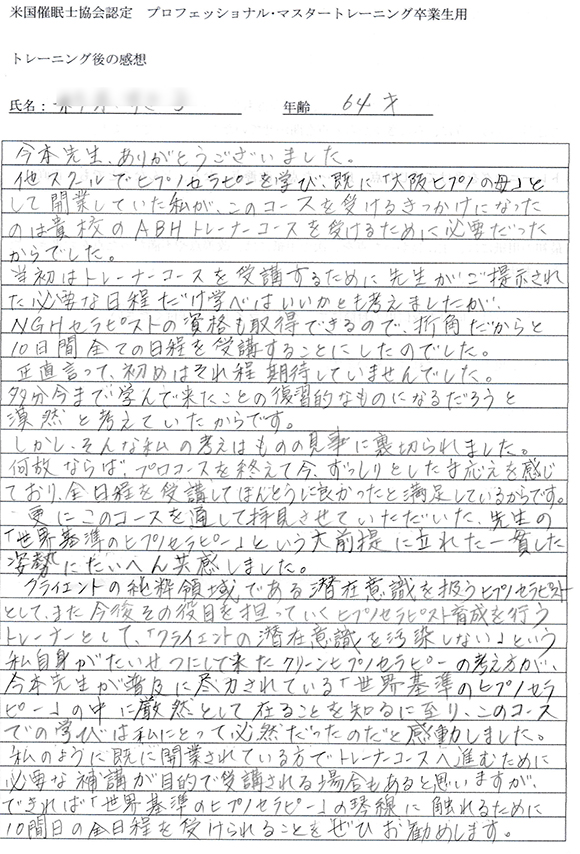 米国催眠士協会認定　プロフェッショナル・マスタートレーニング卒業生用
トレーニング後の感想
氏名：
年齢　64才
今本先生、ありがとうございました。
他スクールでヒプノセラピーを学び、既に「大阪ヒプノの母」と
して開業していた私が、このコースを受けるきっかけになった
のは貴校のABHトレーナーコースを受けるために必要だった
からでした。
当初はトレーナーコースを受講するために先生がご提示され
た必要な日程だけ学べばいいかとも考えましたが、
NGHセラピストの資格も取得できるので、折角だからと
10日間全ての日程を受講することにしたのでした。
正直言って、初めはそれ程期待していませんでした。
多分今まで学んで来たことの復習的なものになるだろうと
漠然と考えていたからです。
しかし、そんな私の考えはものの見事に裏切られました。
何故ならば、プロコースを終えて今、ずっしりとした手応えを感じ
ており、全日程を受講してほんとうに良かったと満足しているからです。
更にこのコースを通して拝見させていただいた、先生の
「世界基準のヒプノセラピー」という大前提に立れた一貫した
姿勢にたいへん共感しました。
クライエントの純粋領域である潜在意識を扱うヒプノセラピスト
として、また今後その役目を担っていくヒプノセラピスト育成を行う
トレーナーとして、「クライエントの潜在意識を汚染しない」という
私自身がたいせつにして来たクリーンヒプノセラピーの考え方が、
今本先生が普及に尽力されている「世界基準のヒプノセラ
ピー」の中に厳然として在ることを知るに至り、このコース
での学びは私にとって必然だったのだと感動しました。
私のように既に開業されている方でトレーナーコースへ進むために
必要な補講が目的で受講される場合もあると思いますが、
できれば「世界基準のヒプノセラピー」の琴線に触れるために
10間日の全日程を受けられることをぜひお勧めします。